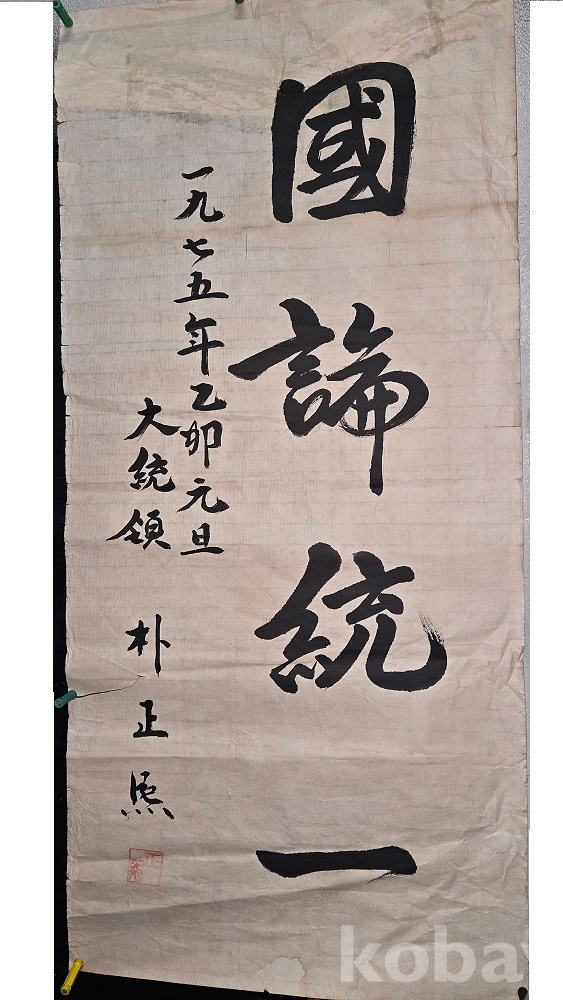 國論統一
一九七五年乙卯元旦
大統領 朴正熙
koba